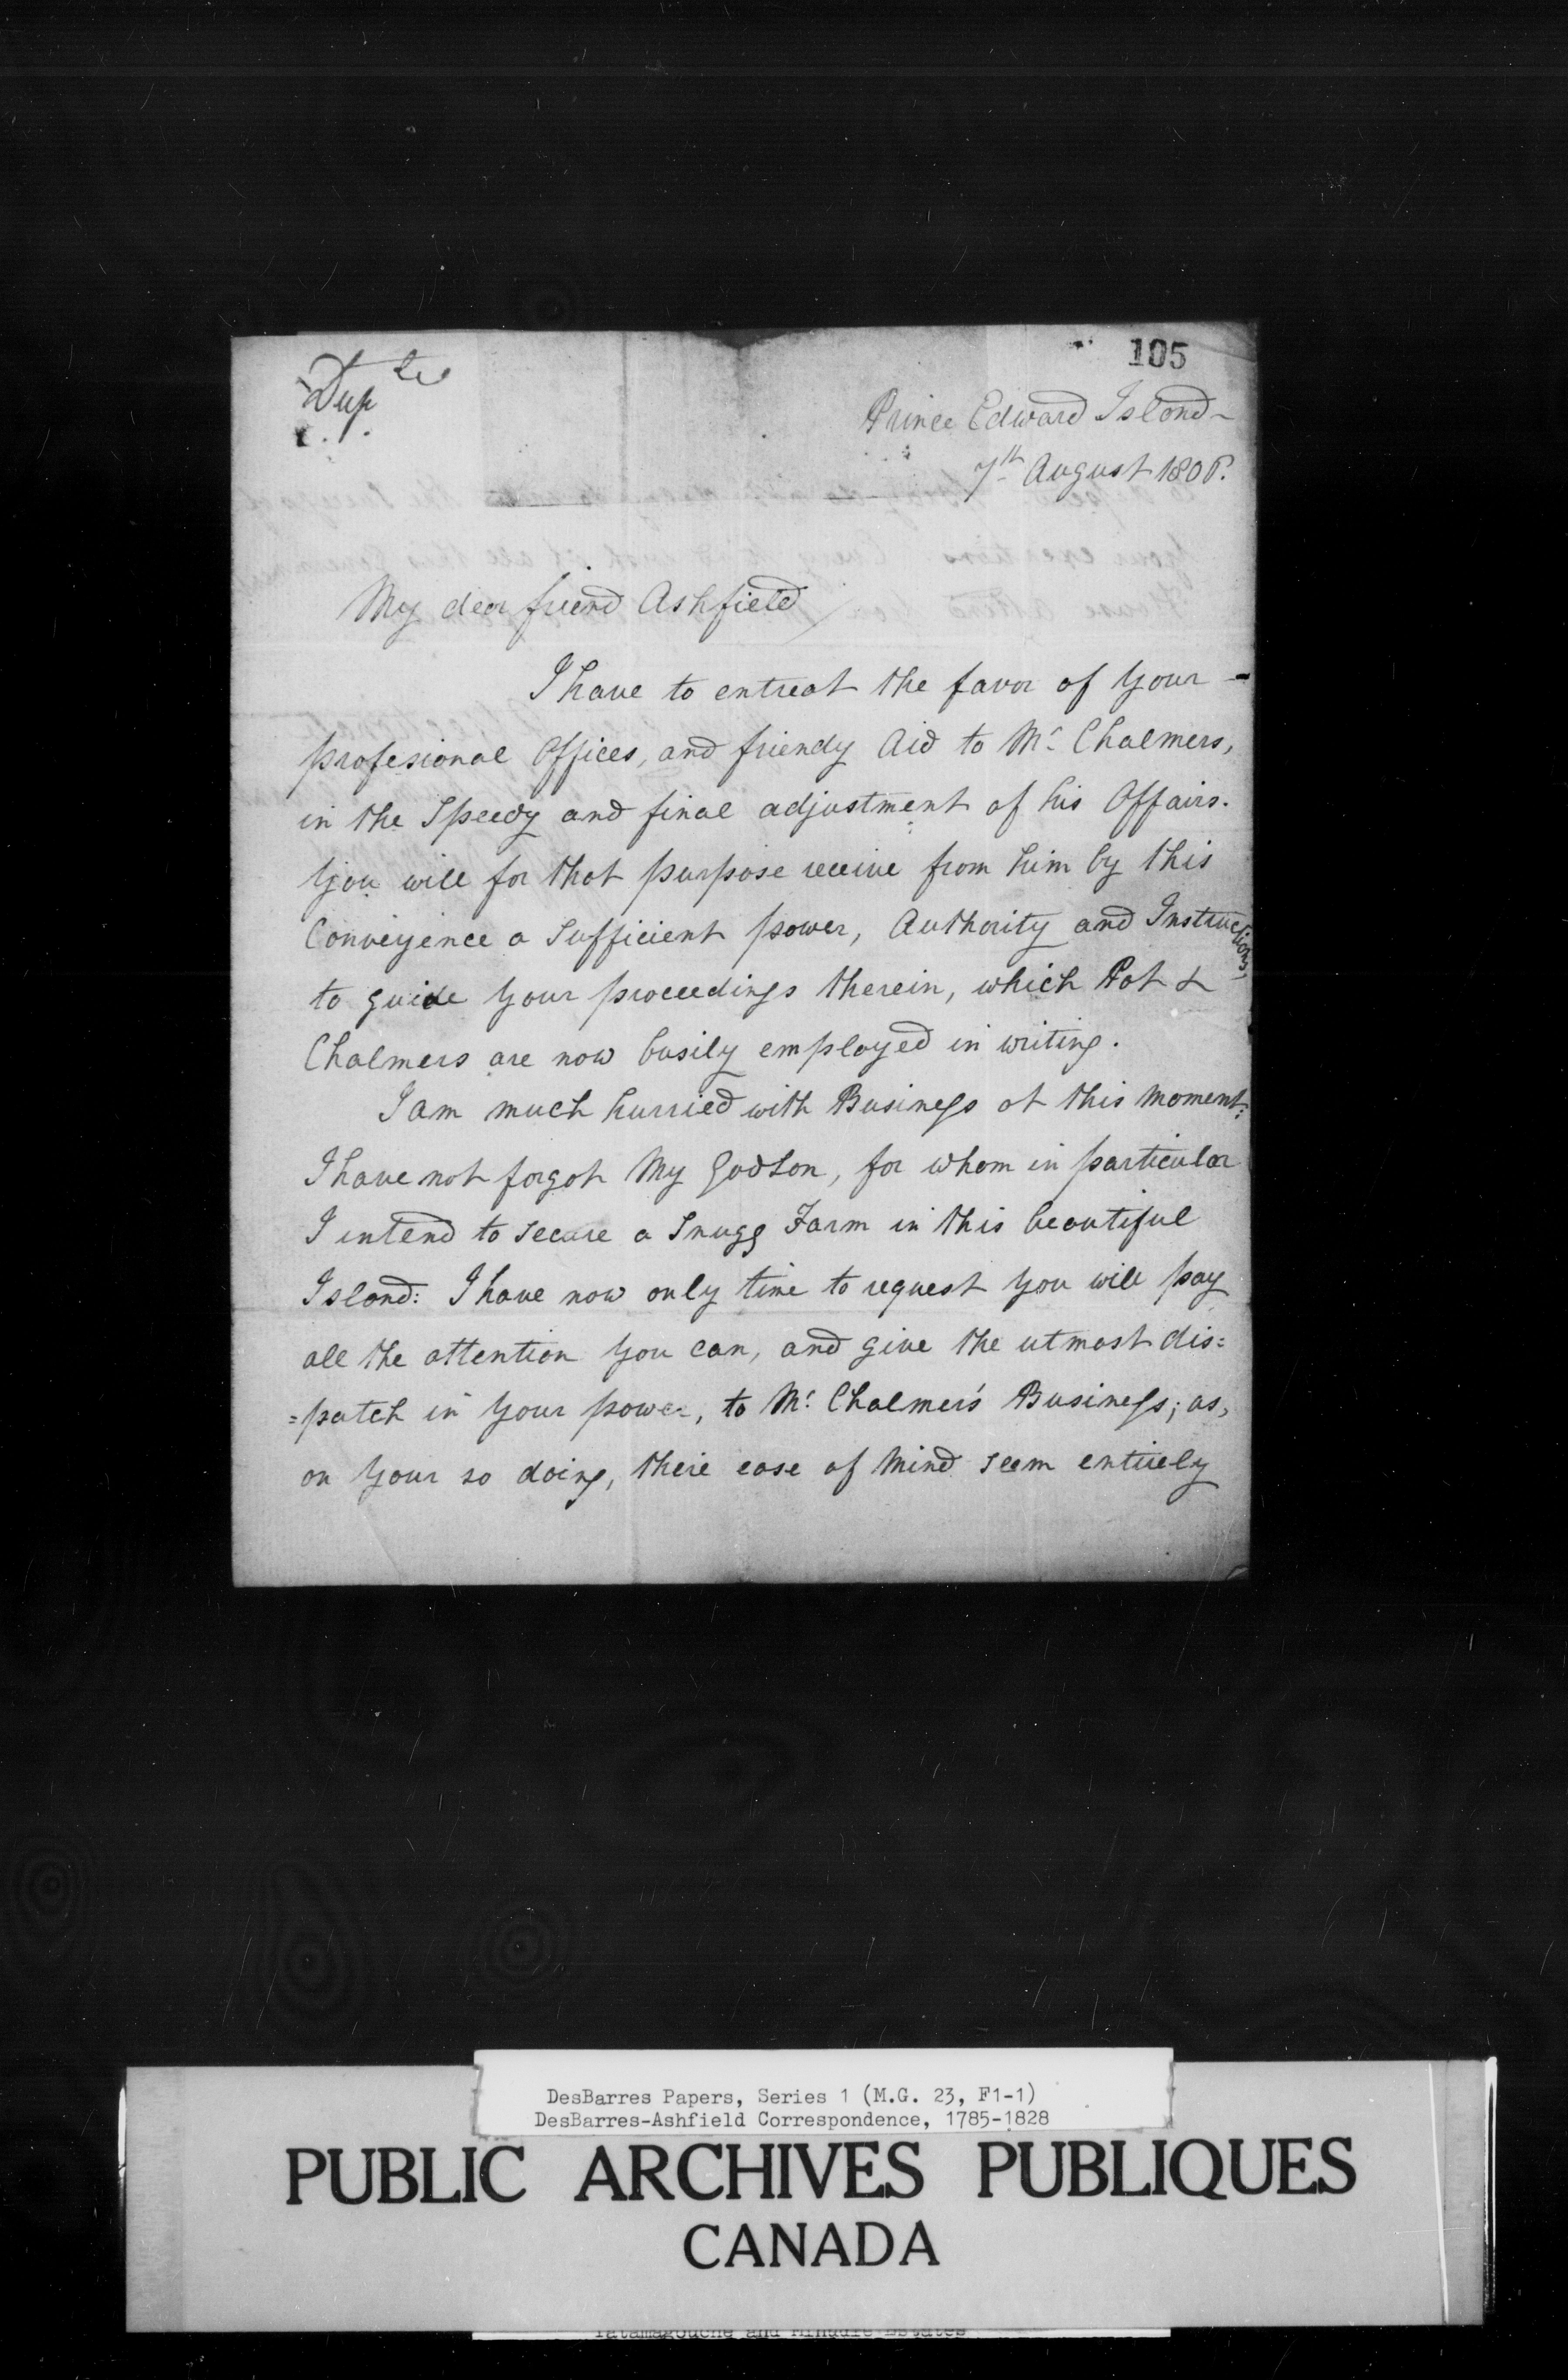 105
Dup te
Prince Edward Island -
7th August 1806.
My dear friend Ashfield
I have to entreat the favor of Your -
profesional Offices, and friendy Aid to Mr. Chalmers,
in the Speedy and final adjustment of his Affairs.
You will for that purpose receive from him by this
Conveyence a Sufficient power, Authority and Instructions,
to guide Your proceedings therein, which Pat &
Chalmers are now busily employed in writing.
I am much hurried with Business at this Moment:
I have not forgot My Godson, for whom in particular
I intend to secure a Snugg Farm in this beautiful
Island: I have now only time to request You will pay
all the attention You can, and give the utmost dis:
=patch in Your power, to Mr. Chalmer's Business; as,
on Your so doing, their ease of Mind seem entirely
DesBarres Papers, Series 1 (M.G. 23, F1-1)
DesBarres-Ashfield Correspondence, 1785-1828
PUBLIC ARCHIVES PUBLIQUES
CANADA
Tatamagouche and Minudie Estates